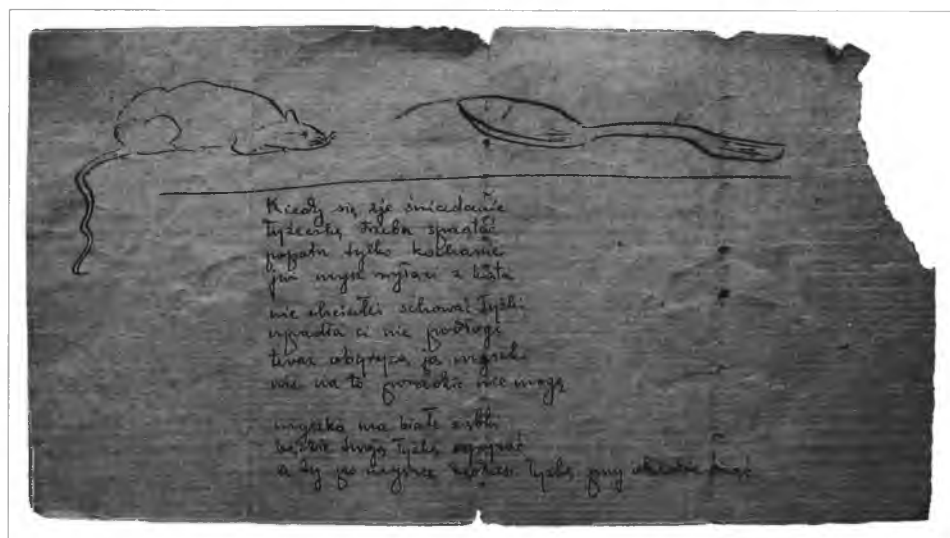 Kiedy się zje śniadanie
łyżeczkę trzeba sprzątać
popatrz tylko kochanie
już mysz wyłazi z kąta
nie chciałeś schować łyżki
upadła ci na podłogę
teraz obgryzą ją myszki
nic na to poradzić nie mogę
myszka ma białe ząbki
będzie twoją łyżkę
a ty po myszce łyżkę przy obiedzie